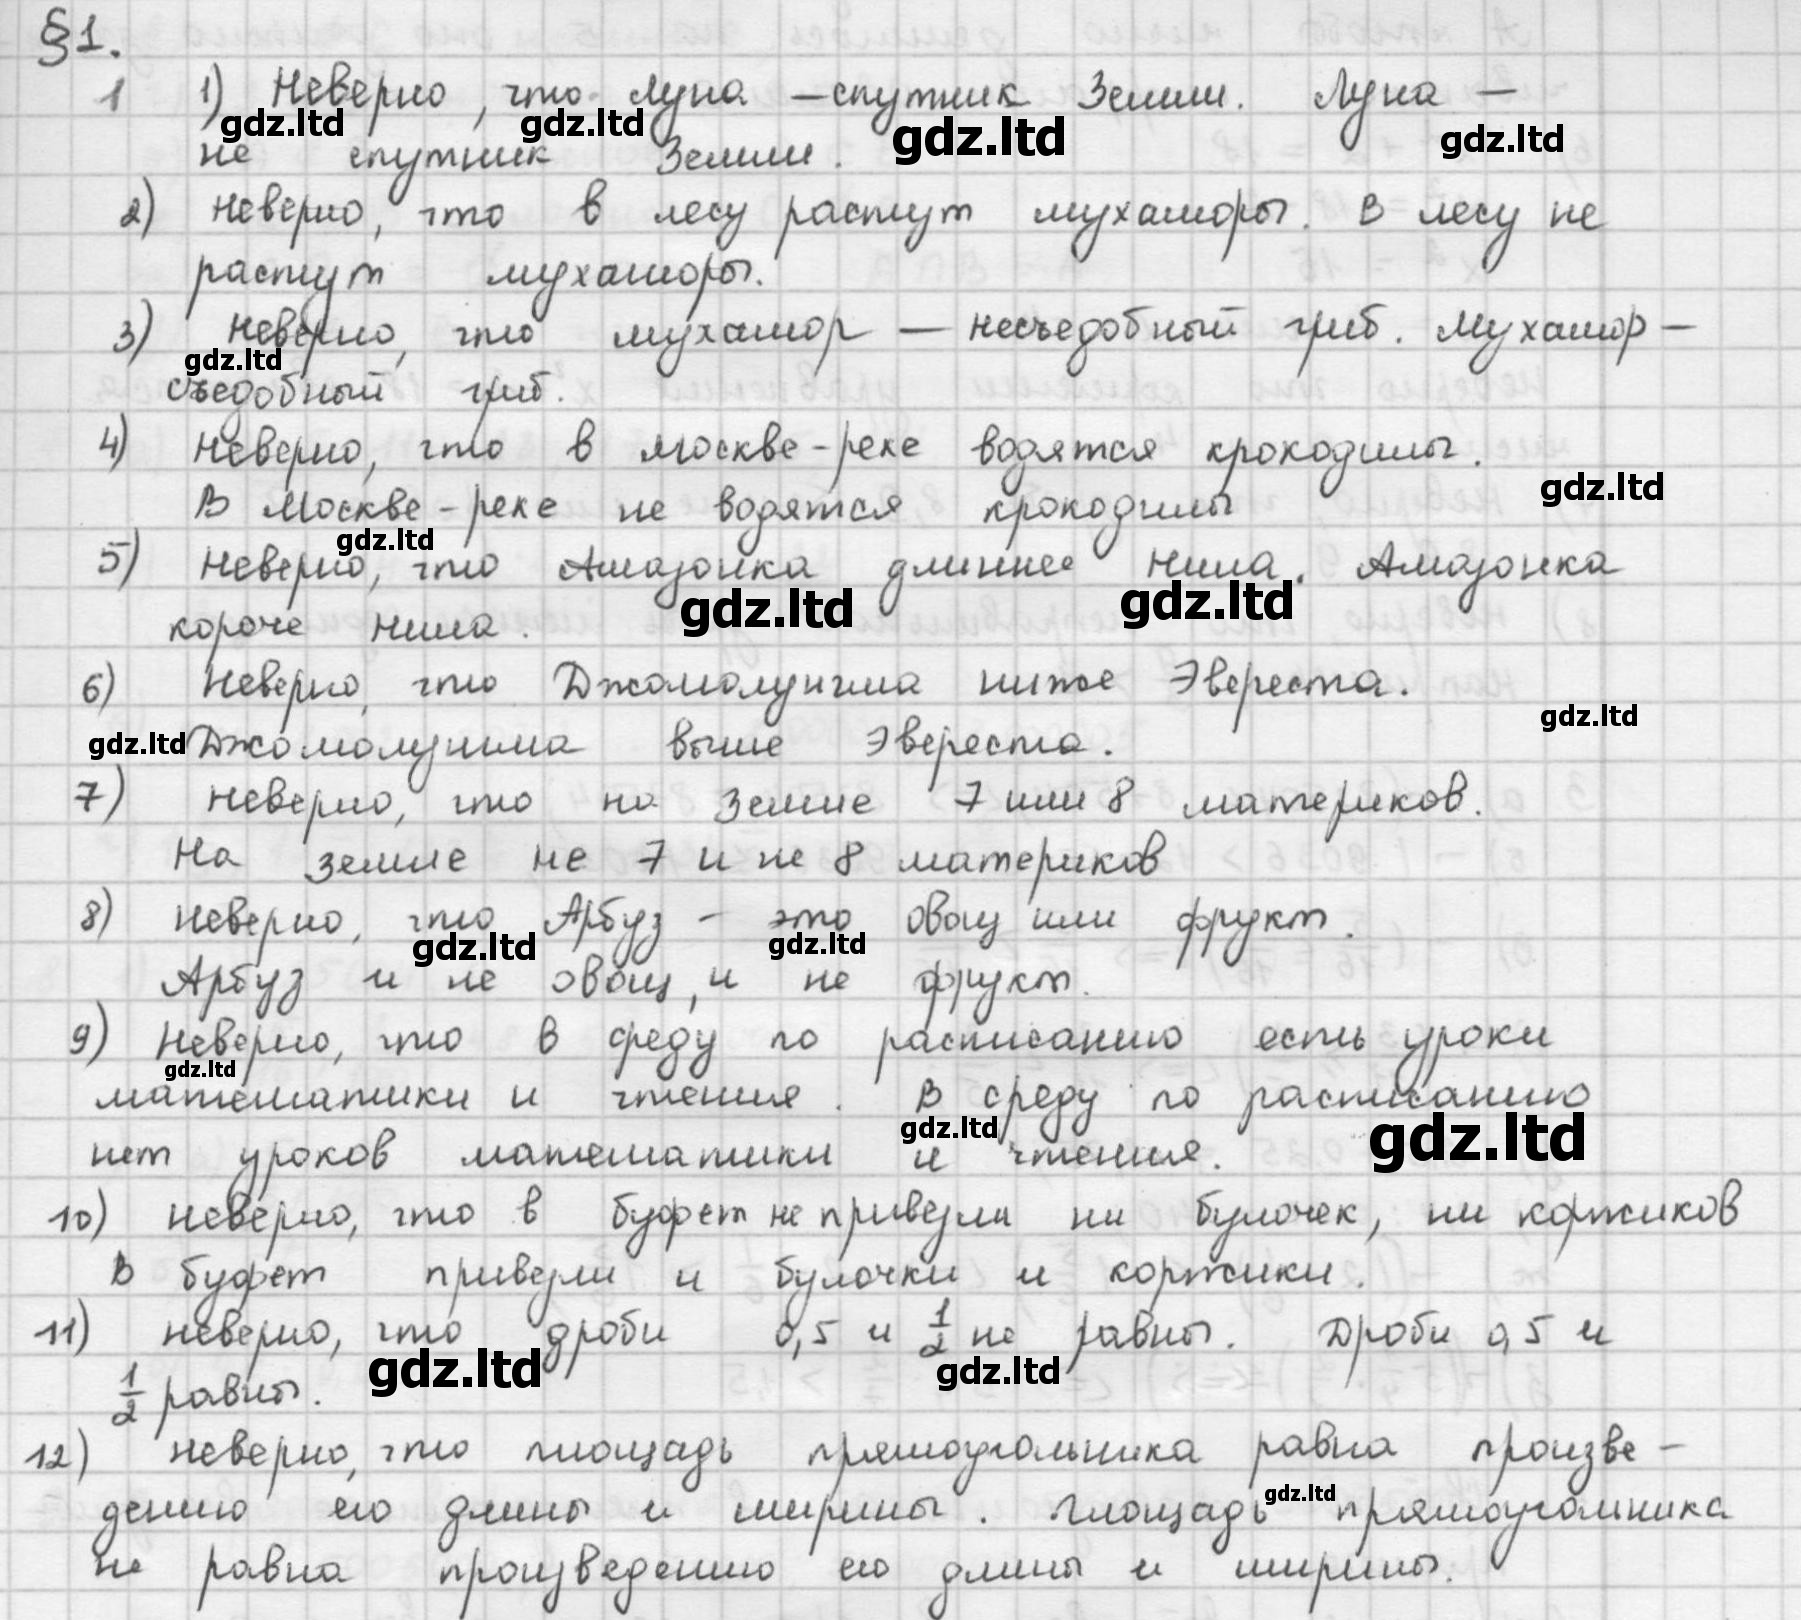 §1.
1 1) Неверно, что Луна – спутник Земли. Луна –
gdz.ltd gdz.ltd gdz.ltd gdz.ltd
не спутник Земли.
2) Неверно, что в лесу растут мухаморы. В лесу не
растут мухаморы.
3) Неверно, что мухамор – несъедобный гриб. Мухамор –
gdz.ltd
съедобный гриб.
4) Неверно, что в Москве-реке водятся крокодилы.
gdz.ltd
В Москве-реке не водятся крокодилы
gdz.ltd
5) Неверно, что Амазонка длиннее Нила. Амазонка
gdz.ltd gdz.ltd
короче Нила.
6) Неверно, что Джомолунгма ниже Эвереста.
gdz.ltd
gdz.ltd Джомолунгма выше Эвереста.
7) Неверно, что на Земле 7 или 8 материков.
На земле не 7 и не 8 материков
8) Неверно, что Арбуз – это овощ или фрукт.
gdz.ltd gdz.ltd
Арбуз и не овощ, и не фрукт.
9) Неверно, что в среду по расписанию есть уроки
gdz.ltd
математики и чтения. В среду по расписанию
gdz.ltd gdz.ltd
нет уроков математики и чтения.
10) Неверно, что в буфет не привезли ни булочек, ни коржиков
В буфет привезли и булочки и коржики.
11) Неверно, что дроби 0,5 и 1/2 не равны. Дроби 0,5 и
gdz.ltd gdz.ltd
1/2 равны.
12) Неверно, что площадь прямоугольника равна произве-
gdz.ltd
дению его длины и ширины. Площадь прямоуголника
не равна произведению его длины и ширины.